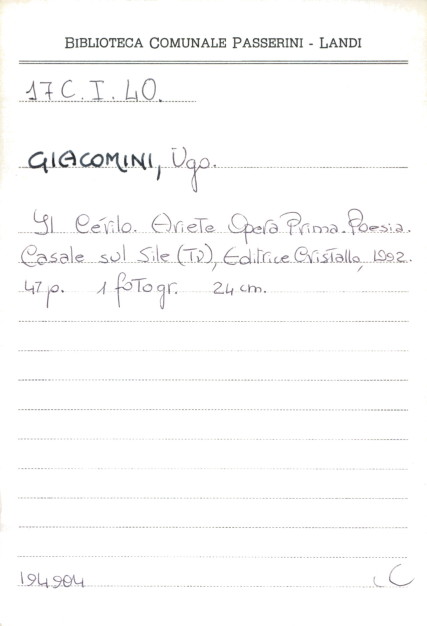 BIBLIOTECA COMUNALE PASSERINI - LANDI
17 C. I. 40.
GIACOMINI, Ugo.
Il Cérilo. Ariete Opera Prima. Poesia.
Casale sul Sile (TV), Editrice Cristallo, 1992.
47 p. 1 fotogr. 24 cm.
194904